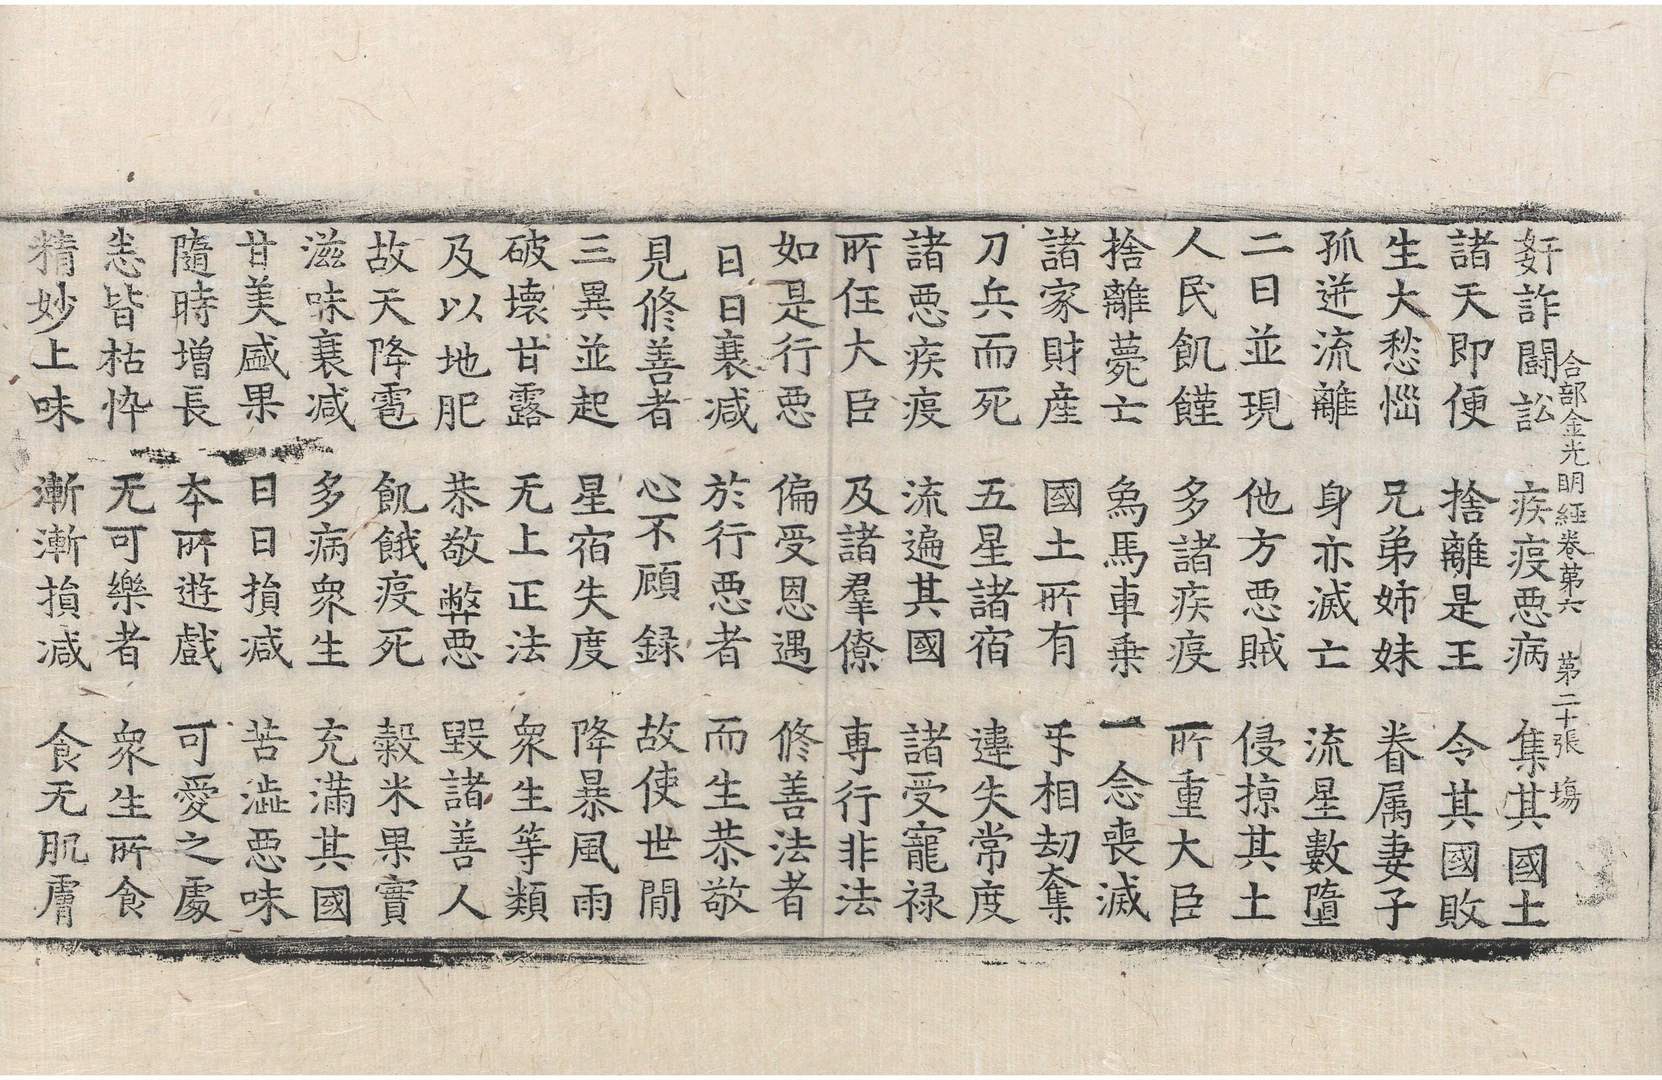 合部金光明經卷第六 第二十張 塲
姧詐鬪訟 疾疫惡病 集其國土
諸天即便 捨離是王 令其國敗
生大愁惱 兄弟姉妹 眷属妻子
孤迸流離 身亦滅亡 流星數墮
二日並現 他方惡賊 侵掠其土
人民飢饉 多諸疾疫 所重大臣
捨離薨亡 象馬車乗 一念喪滅
諸家財産 國土所有 㸦相劫奪
刀兵而死 五星諸宿 違失常度
諸惡疾疫 流遍其國 諸受寵禄
所任大臣 及諸羣僚 専行非法
如是行惡 偏受恩遇 修善法者
日日衰减 於行惡者 而生恭敬
見修善者 心不顧録 故使世間
三異並起 星宿失度 降暴風雨
破壞甘露 无上正法 衆生等類
及以地肥 恭敬弊惡 毀諸善人
故天降雹 飢餓疫死 糓米果實
滋味衰减 多病衆生 充滿其國
甘美盛果 日日損减 苦澁惡味
隨時增長 本所遊戲 可愛之處
悉皆枯悴 无可樂者 衆生所食
精妙上味 漸漸損减 食无肌膚